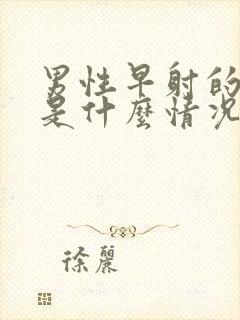 男性早射的
是什麼情況
徐麗